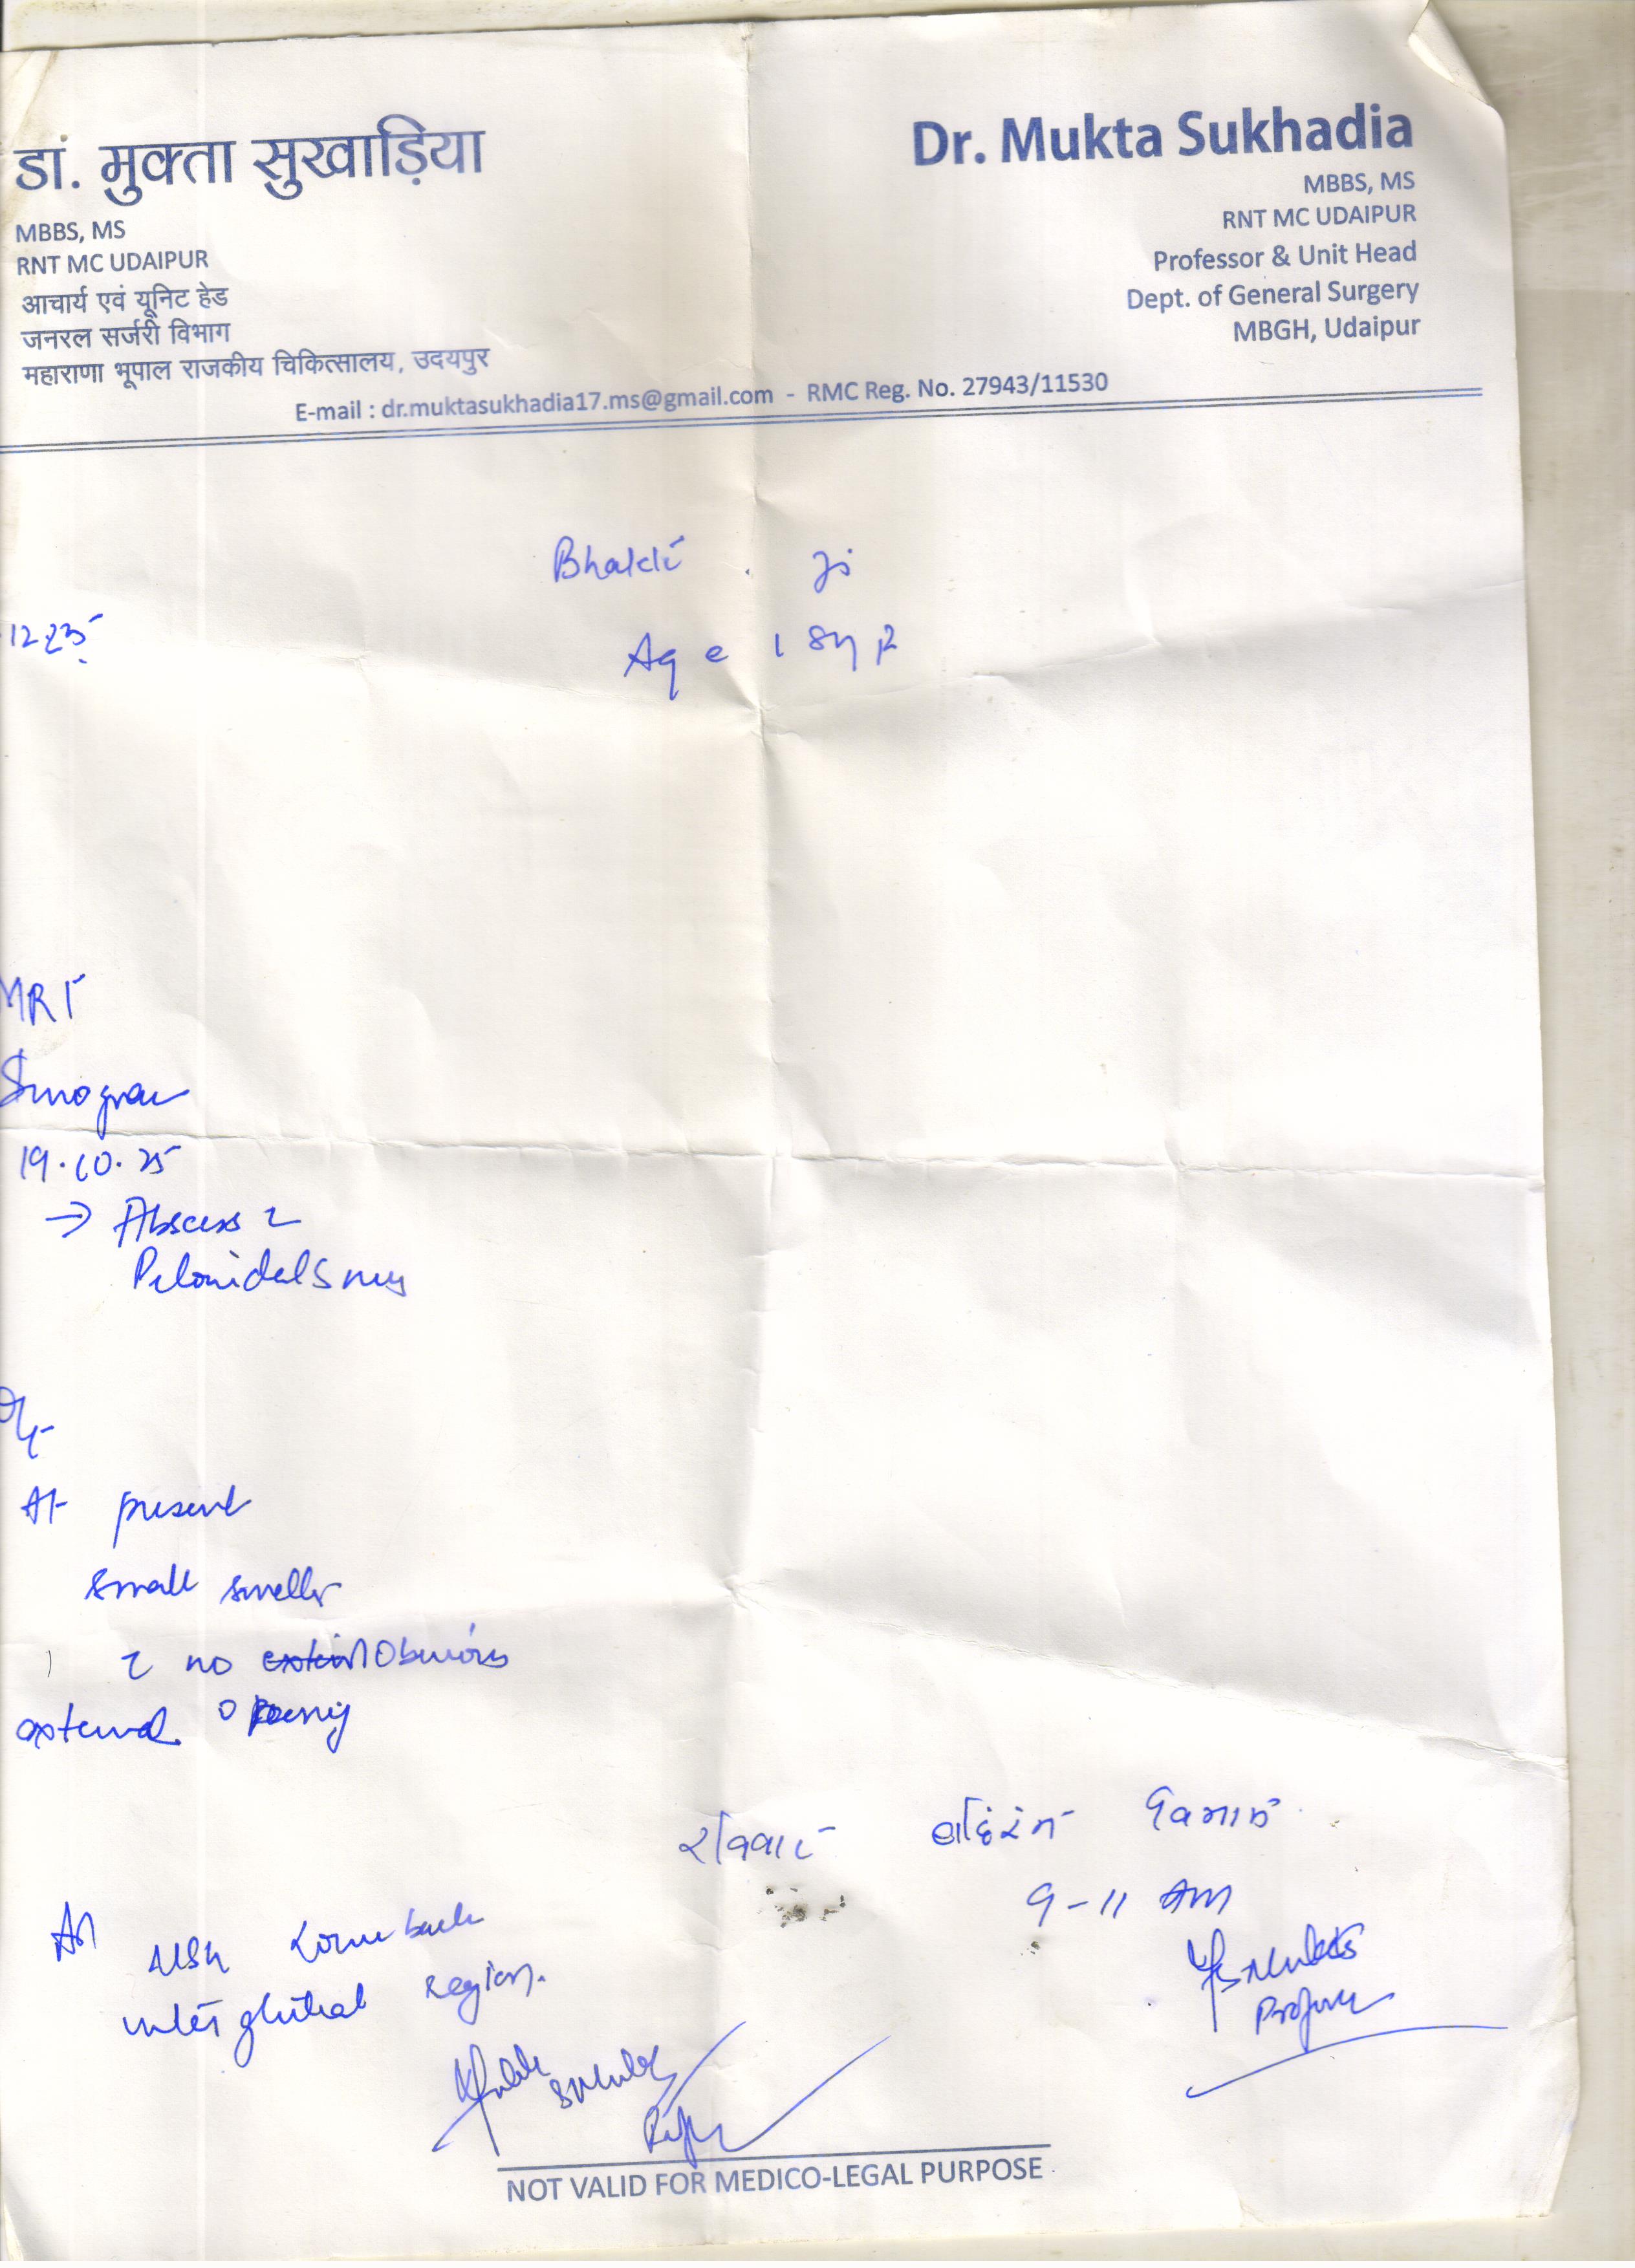 डां. मुक्ता सुखाड़िया
MBBS, MS
RNT MC UDAIPUR
आचार्य एवं यूनिट हेड
जनरल सर्जरी विभाग
महाराणा भूपाल राजकीय चिकित्सालय, उदयपुर
Dr. Mukta Sukhadia
MBBS, MS
RNT MC UDAIPUR
Professor & Unit Head
Dept. of General Surgery
MBGH, Udaipur
E-mail : dr.muktasukhadia17.ms@gmail.com - RMC Reg. No. 27943/11530
Bhakti Ji
Age 18y
MRI
Sinogram
19.10.25
→ Abscess
Pilonidal Sinus
At present
small swelling
no obvious
external opening
रविवार
9-11 AM
USG
inter gluteal region.
Professor
NOT VALID FOR MEDICO-LEGAL PURPOSE